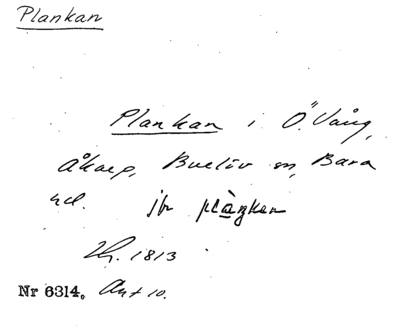 Plankan
Plankan i Ö. Vång,
Åkarp, Burlöv sn, Bara
hd. jfr plàŋkan
1813
Nr 6314. Akt 10.